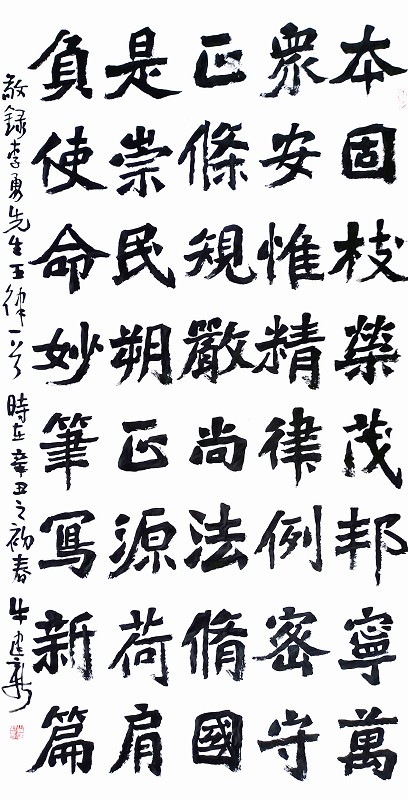 本固枝榮茂邦寧萬
眾安惟精律例密守
正條規嚴尚法脩國
是崇民朔正源荷肩
負使命妙筆寫新篇
敬錄李勇先生五律一首 時在辛丑之初春 牛建新